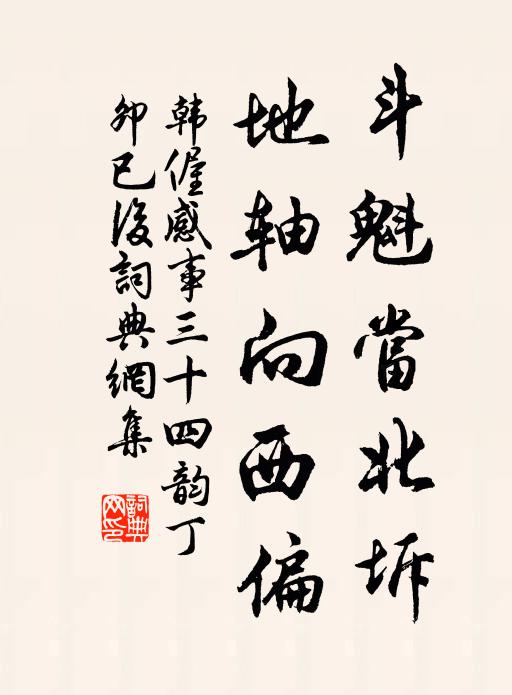 斗魁當北坼
地轴向西偏
韩偓感事三十四韵丁
卯已後詞典網集
詞典網印